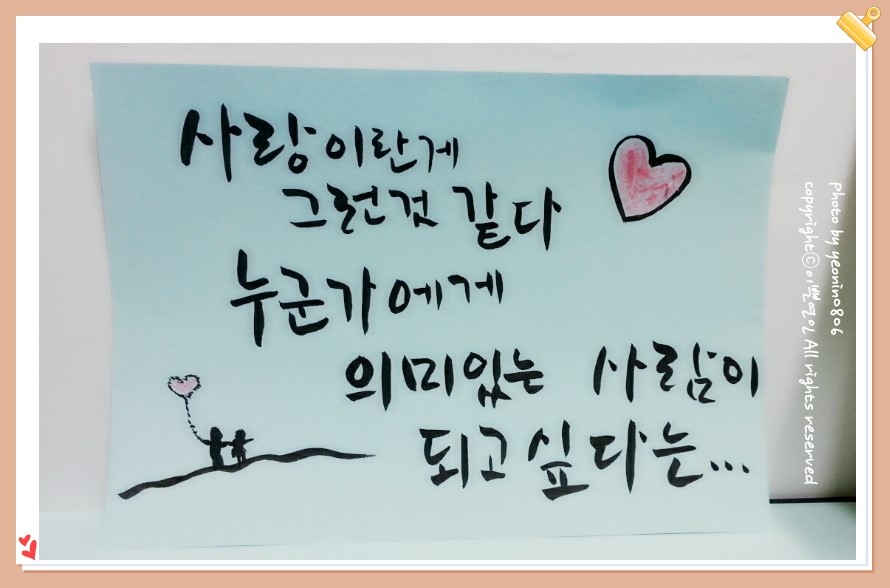 사랑이란게
그런것 같다
누군가에게
의미있는 사람이
되고싶다는...
Photo by yeonin0806
copyrightⓒ이쁜연인 All rights reserved